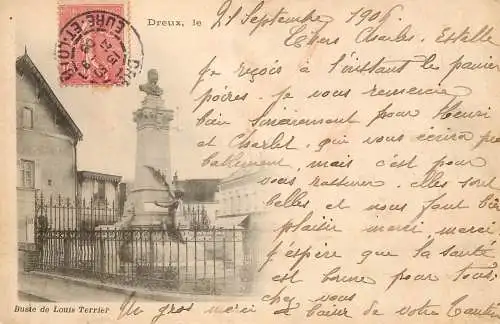 Dreux, le 21 Septembre 1906
Chers Charles, Estelle
Je reçois à l'instant le panier
poires, je vous remercie
bien sincèrement pour Henri
et Charlot, qui vous écrira pro
bablement, mais c'est pour
vous rassurer, elles sont
belles et vous font bien
plaisir merci merci
J'espère que la santé
est bonne pour tous.
chez vous
Un gros merci et baiser de votre
Buste de Louis Terrier
EURE-ET-LOIR